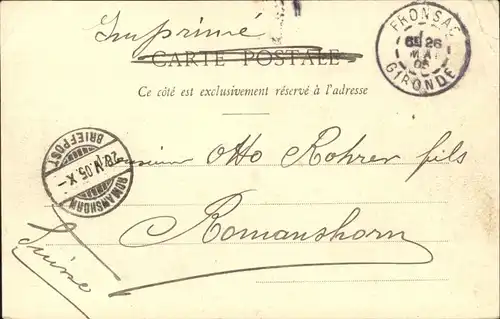 Imprimé
CARTE POSTALE
Ce côté est exclusivement réservé à l'adresse
FRONSAC
26
MAI
05
GIRONDE
BRIEFPOST
28.V.05.X-
ROMANSHORN
Monsieur Otto Rohrer fils
Romanshorn
Suisse